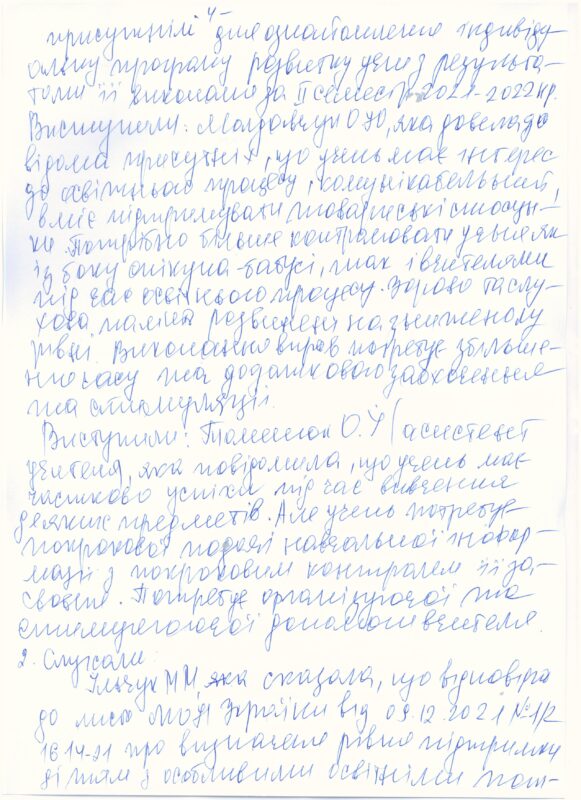 присутнілі для ознайомлення індивіду-
альну програму розвитку учня з результа-
тами її виконання за ІІ семестр 2021-2022 н.р.
Виступили: Молдавчук О Ю, яка довела до
відома присутніх, що учень має інтерес
до освітнього процесу, комунікабельний,
вміє підтримувати товариські стосун-
ки. Потрібно більше контролювати учня як
із боку опікуна-бабусі, так і вчителями
під час освітнього процесу. Зорова та слу-
хова пам'ять розвинені на зниженому
рівні. Виконання вправ потребує збільше-
ння часу та додаткового заохочення
та стимуляції.
Виступили: О.Я (асистент
учителя, яка повідомила, що учень має
частково успіхи під час вивчення
деяких предметів. Але учень потребує
покрокової подачі навчальної інфор-
мації з покроковим контролем її за-
своєння. Потребує організуючої та
стимулюючої допомоги вчителя.
2. Слухали:
Ільчук ММ, яка сказала, що відповідно
до листа МОН України від 09.12.2021 №1/2
1614-21 про визначення рівня підтримки
дітям з особливими освітніми пот-